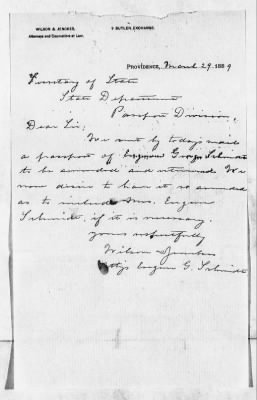 WILSON & JENCKES,
Attorneys and Counsellors at Law.
2 BUTLER EXCHANGE.
PROVIDENCE, March 29, 1889
Secretary of State
State Department
Passport Division,
Dear Sir,
We sent by today's maid
a passport of Eugene G. Schmidt
to be amended and returned. We
now desire to have it so amended
as to include Mrs. Eugene
Schmidt, if it is necessary.
Yours respectfully
Wilson & Jenckes
Attys Eugene G. Schmidt